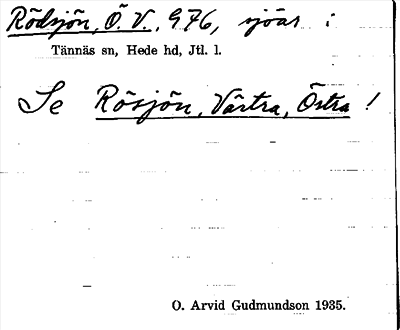 Rödsjön, Ö. V., 976, sjöar i
Tännäs sn, Hede hd, Jtl. l.
Se Rösjön, Västra, Östra!
O. Arvid Gudmundson 1935.